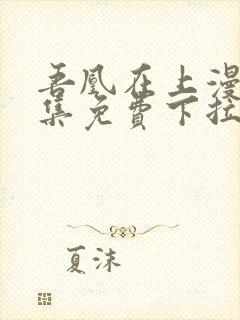 吾凰在上漫
集免费下拉
夏沫